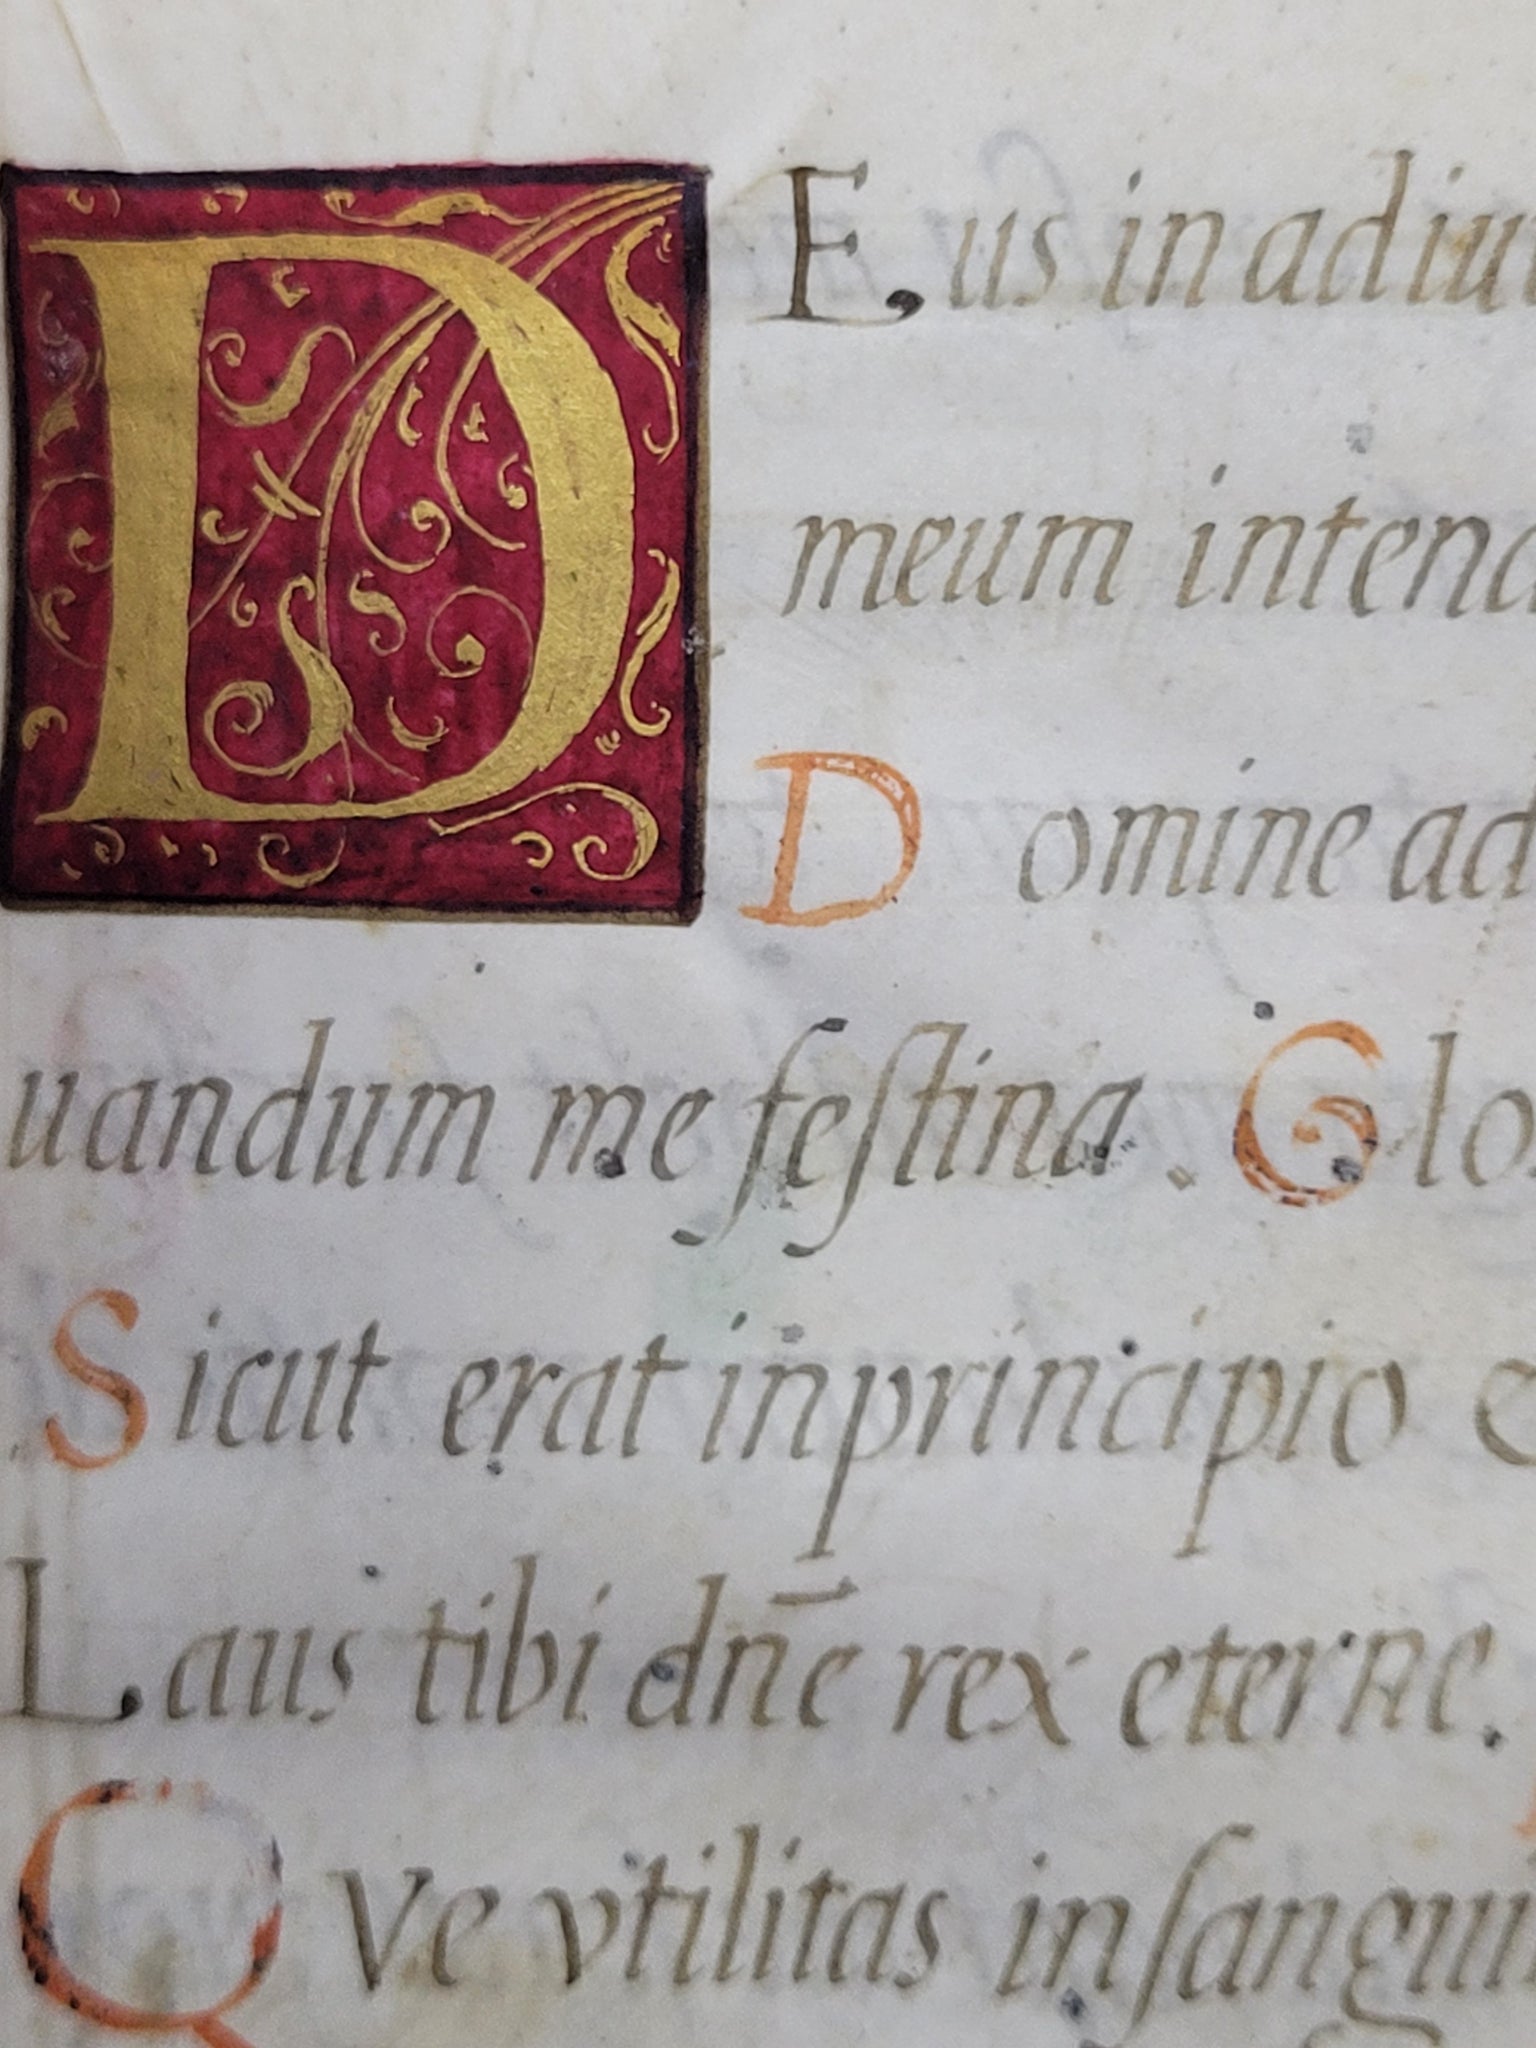 DEus in adiu
meum intend
Domine ad
uandum me festina. Glo
Sicut erat in principio e
Laus tibi dn̄e rex eterne.
Qve vtilitas in sangui